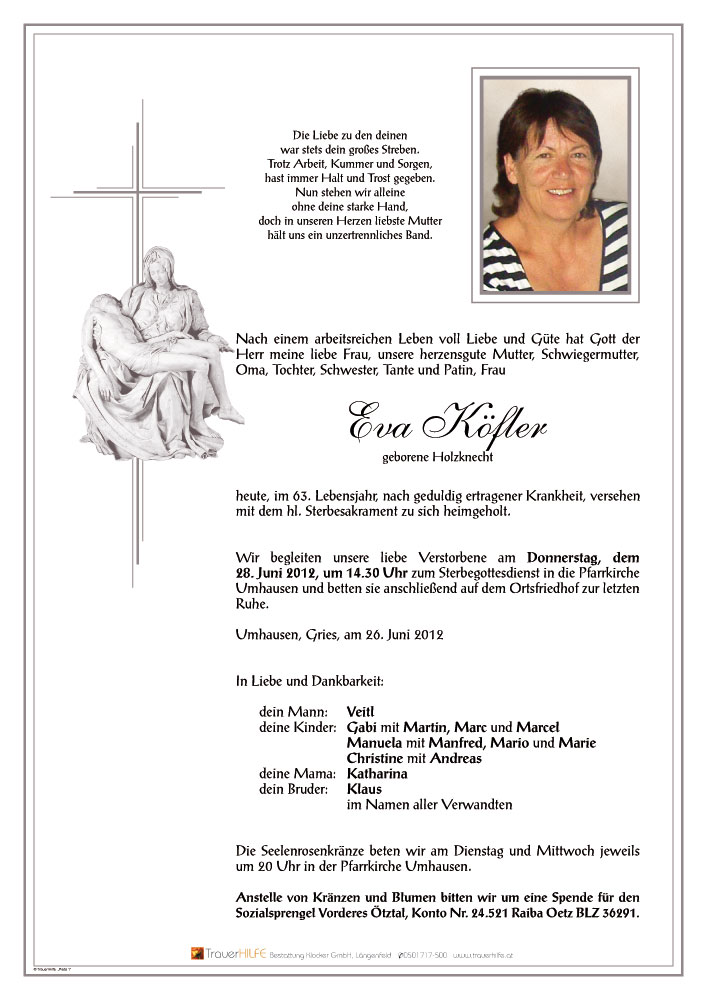 Die Liebe zu den deinen
war stets dein großes Streben.
Trotz Arbeit, Kummer und Sorgen,
hast immer Halt und Trost gegeben.
Nun stehen wir alleine
ohne deine starke Hand,
doch in unseren Herzen liebste Mutter
hält uns ein unzertrennliches Band.
Nach einem arbeitsreichen Leben voll Liebe und Güte hat Gott der
Herr meine liebe Frau, unsere herzensgute Mutter, Schwiegermutter,
Oma, Tochter, Schwester, Tante und Patin, Frau
Eva Köfler
geborene Holzknecht
heute, im 63. Lebensjahr, nach geduldig ertragener Krankheit, versehen
mit dem hl. Sterbesakrament zu sich heimgeholt.
Wir begleiten unsere liebe Verstorbene am Donnerstag, dem
28. Juni 2012, um 14.30 Uhr zum Sterbegottesdienst in die Pfarrkirche
Umhausen und betten sie anschließend auf dem Ortsfriedhof zur letzten
Ruhe.
Umhausen, Gries, am 26. Juni 2012
In Liebe und Dankbarkeit:
dein Mann: Veitl
deine Kinder: Gabi mit Martin, Marc und Marcel
Manuela mit Manfred, Mario und Marie
Christine mit Andreas
deine Mama: Katharina
dein Bruder: Klaus
im Namen aller Verwandten
Die Seelenrosenkränze beten wir am Dienstag und Mittwoch jeweils
um 20 Uhr in der Pfarrkirche Umhausen.
Anstelle von Kränzen und Blumen bitten wir um eine Spende für den
Sozialsprengel Vorderes Ötztal, Konto Nr. 24.521 Raiba Oetz BLZ 36291.
TrauerHILFE Bestattung Klocker GmbH, Längenfeld ✆0501717-500 www.trauerhilfe.at